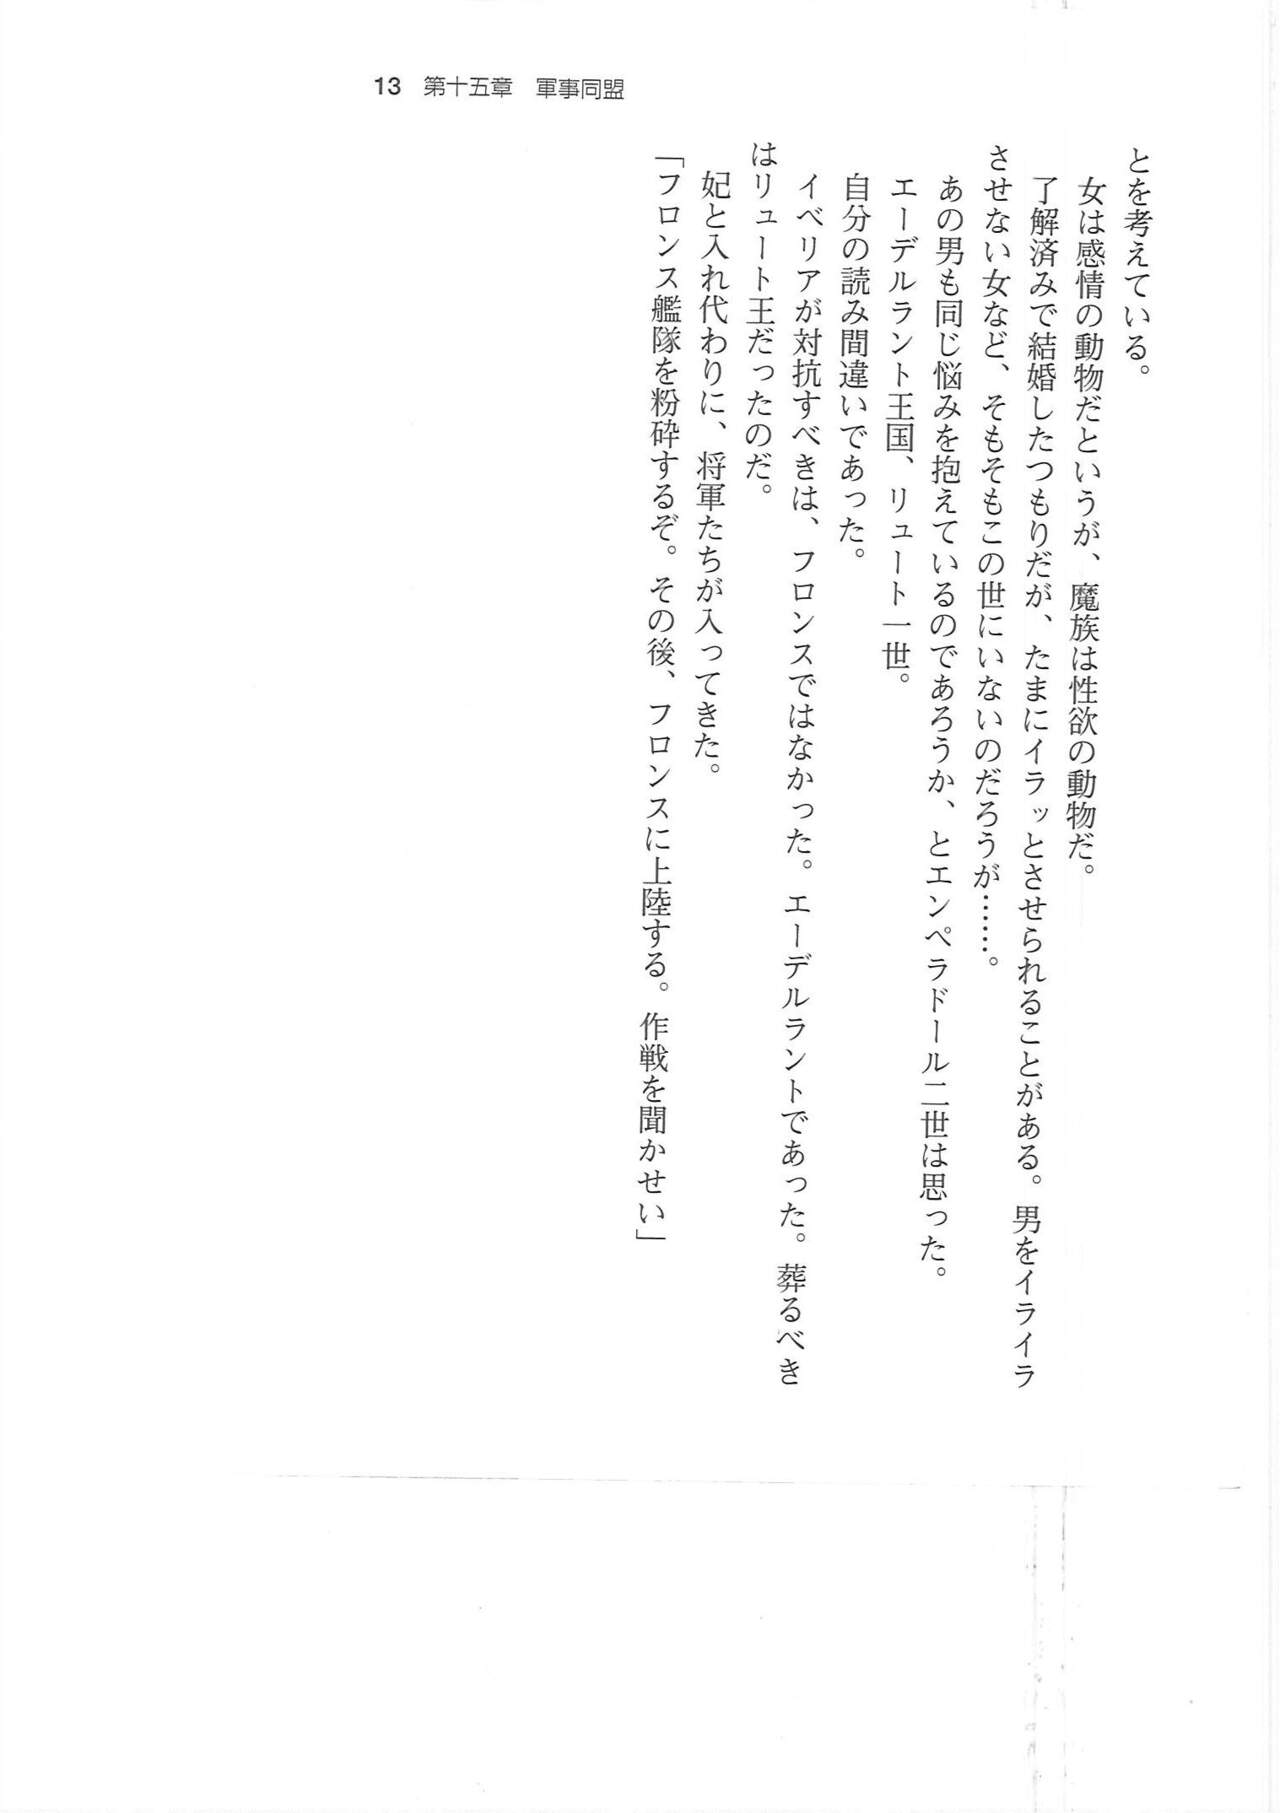 13　第十五章　軍事同盟
とを考えている。
女は感情の動物だというが、魔族は性欲の動物だ。
了解済みで結婚したつもりだが、たまにイラッとさせられることがある。男をイライラ
させない女など、そもそもこの世にいないのだろうが……。
あの男も同じ悩みを抱えているのであろうか、とエンペラドール二世は思った。
エーデルラント王国、リュート一世。
自分の読み間違いであった。
イベリアが対抗すべきは、フロンスではなかった。エーデルラントであった。葬るべき
はリュート王だったのだ。
妃と入れ代わりに、将軍たちが入ってきた。
「フロンス艦隊を粉砕するぞ。その後、フロンスに上陸する。作戦を聞かせい」